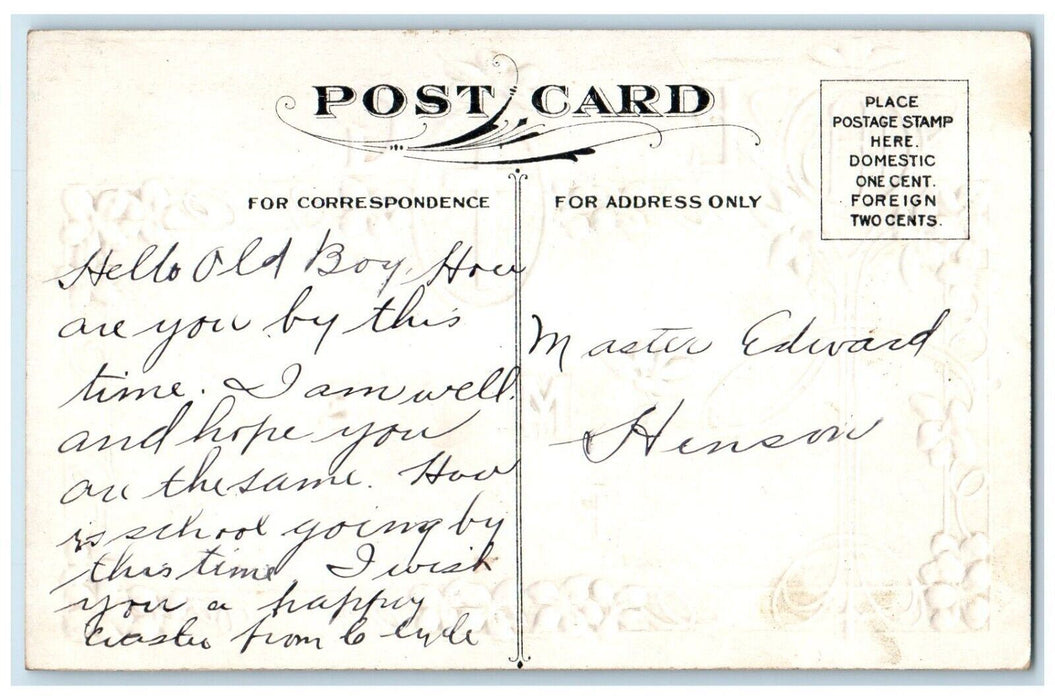 POST CARD
PLACE
POSTAGE STAMP
HERE.
DOMESTIC
ONE CENT.
FOREIGN
TWO CENTS.
FOR CORRESPONDENCE
Hello Old Boy, How
are you by this
time. I am well.
and hope you
are the same. How
is school going by
this time I wish
you a happy
Easter from Clyde
FOR ADDRESS ONLY
Master Edward
Henson